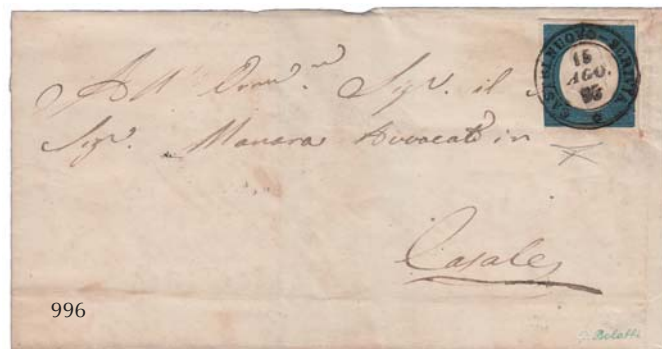 CASTELNUOVO-SCRIVIA
15
AGO.
All' Orn.mo Sig.r il
Sig.r Manara Avvocato in
Casale
996
G. Bolaffi